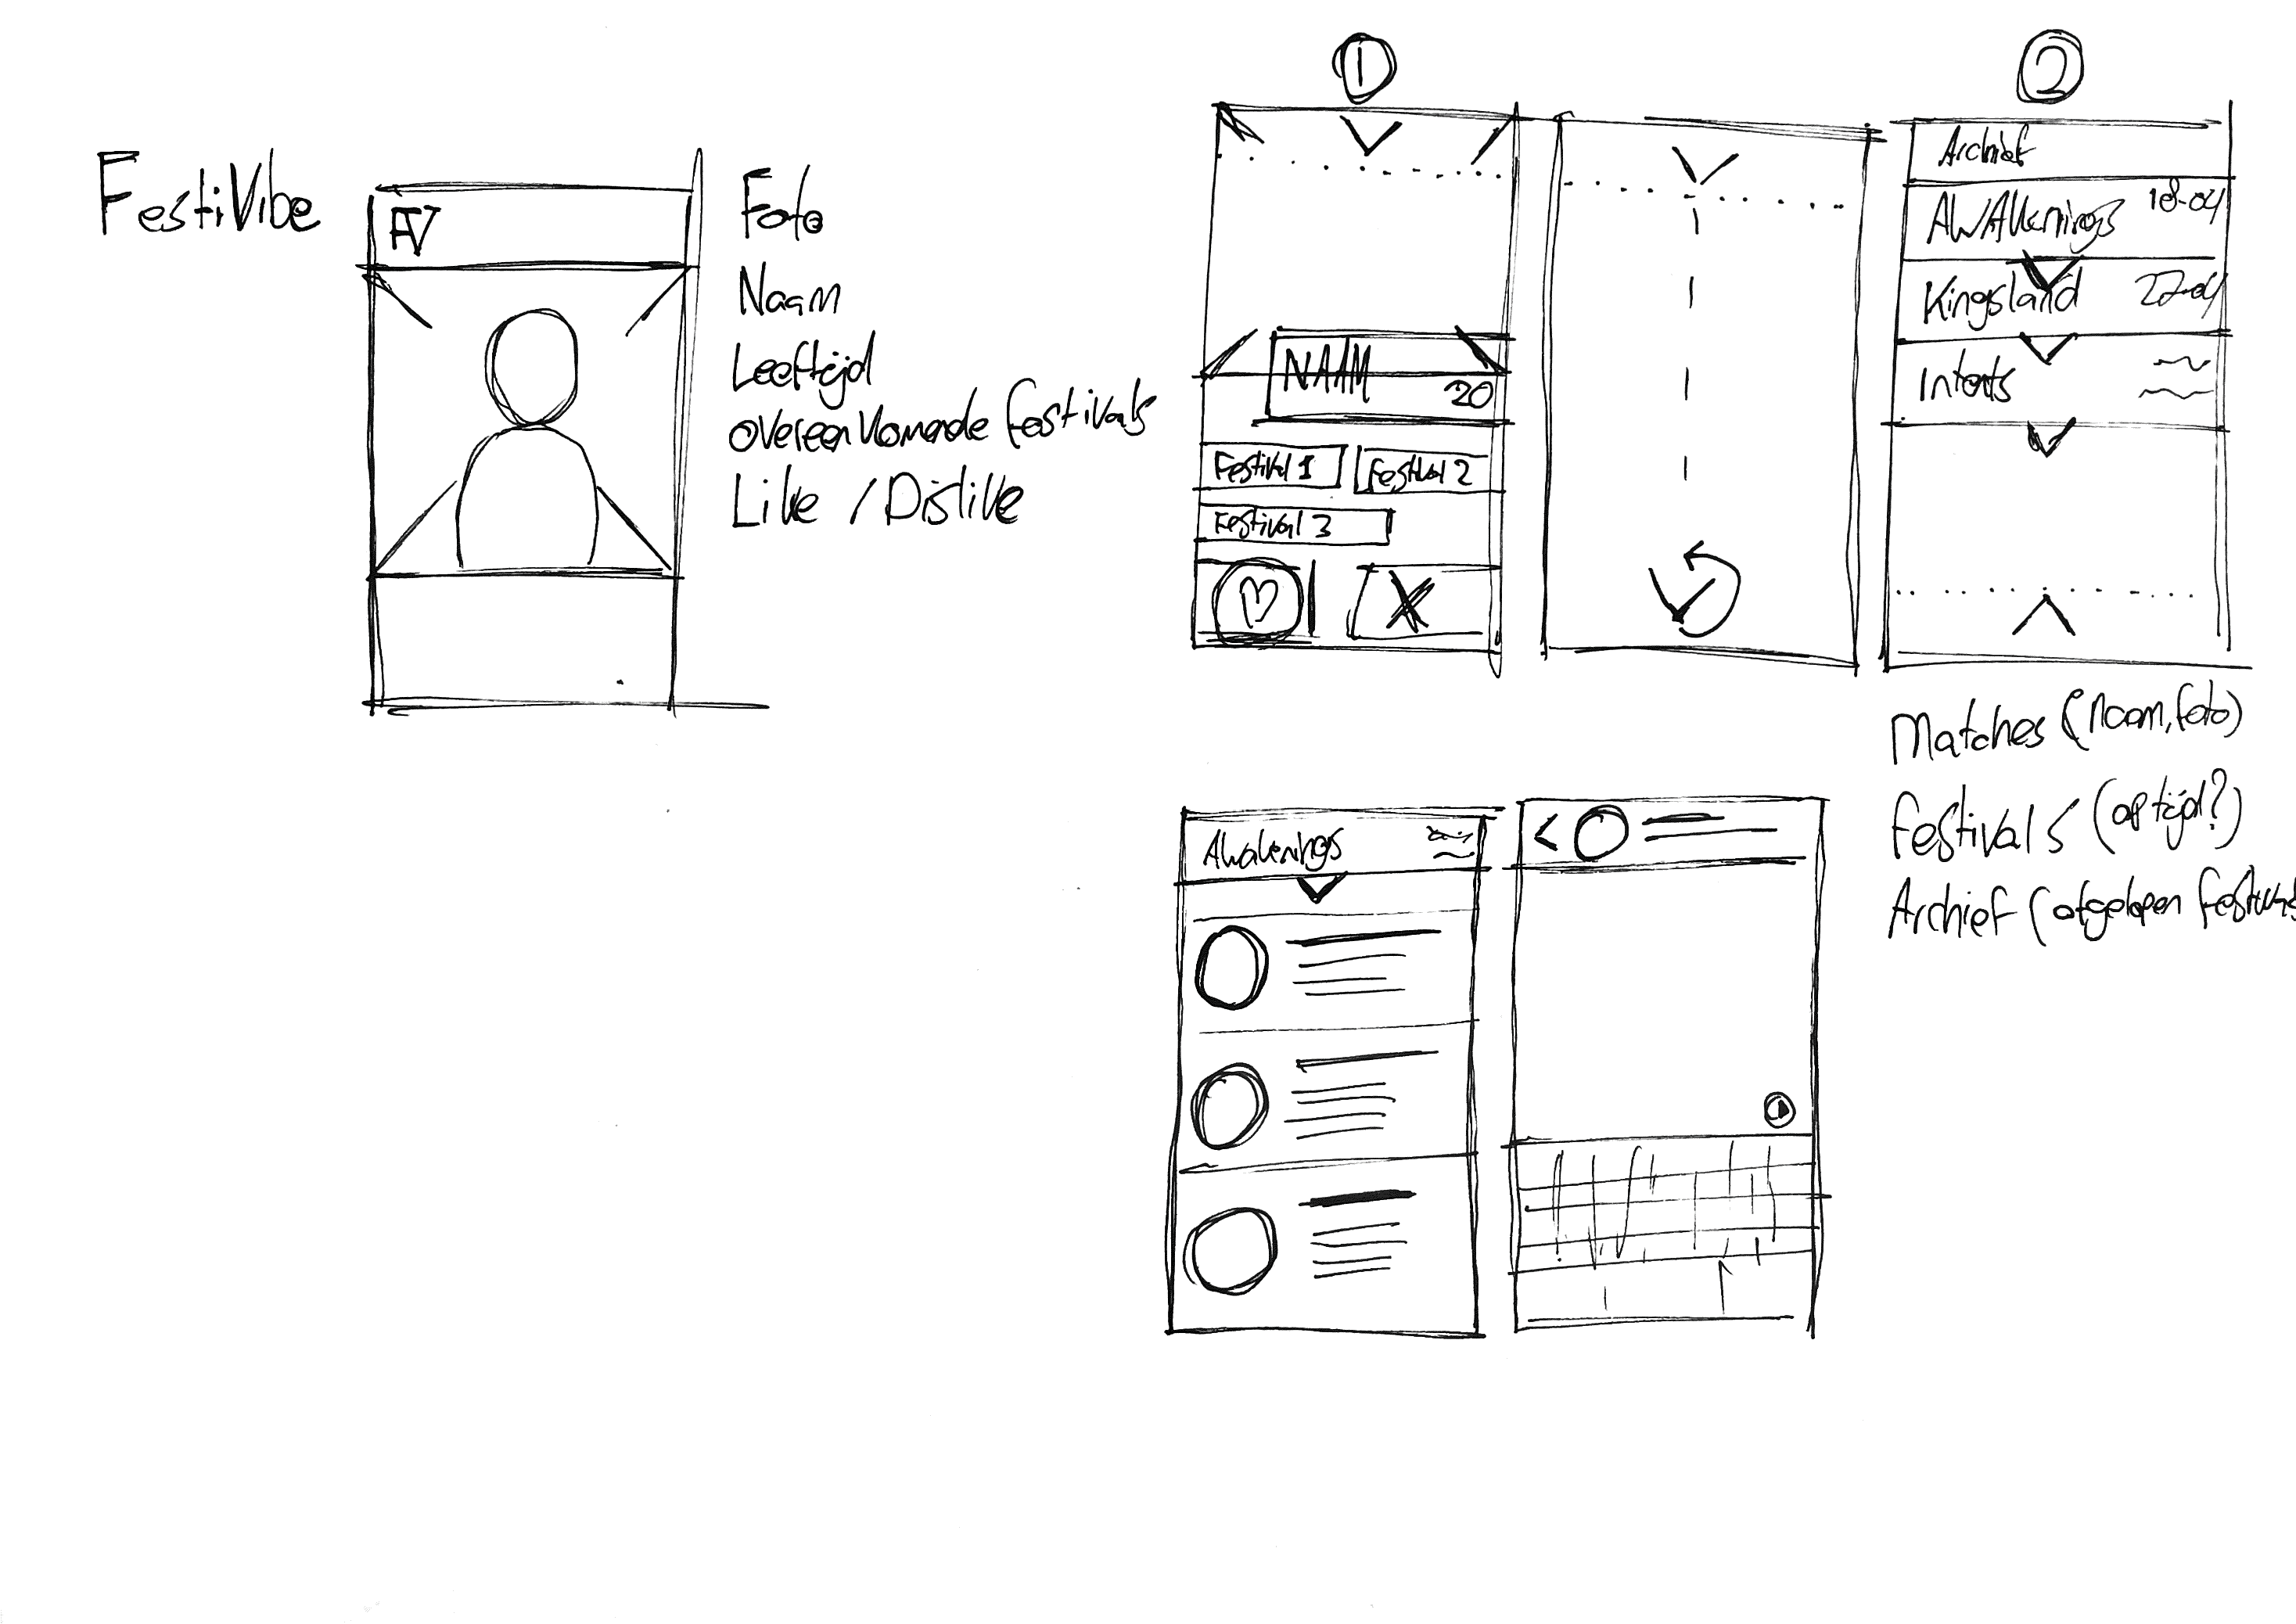 FestiVibe
FV
Foto
Naam
Leeftijd
overeenkomende festivals
Like / Dislike
1
NAAM
20
Festival 1
Festival 2
Festival 3
2
Archief
AWAkenings 18-04
Kingsland 27-04
Intents
Matches (naam, foto)
Festivals (op tijd?)
Archief (afgelopen festivals
Awakenings